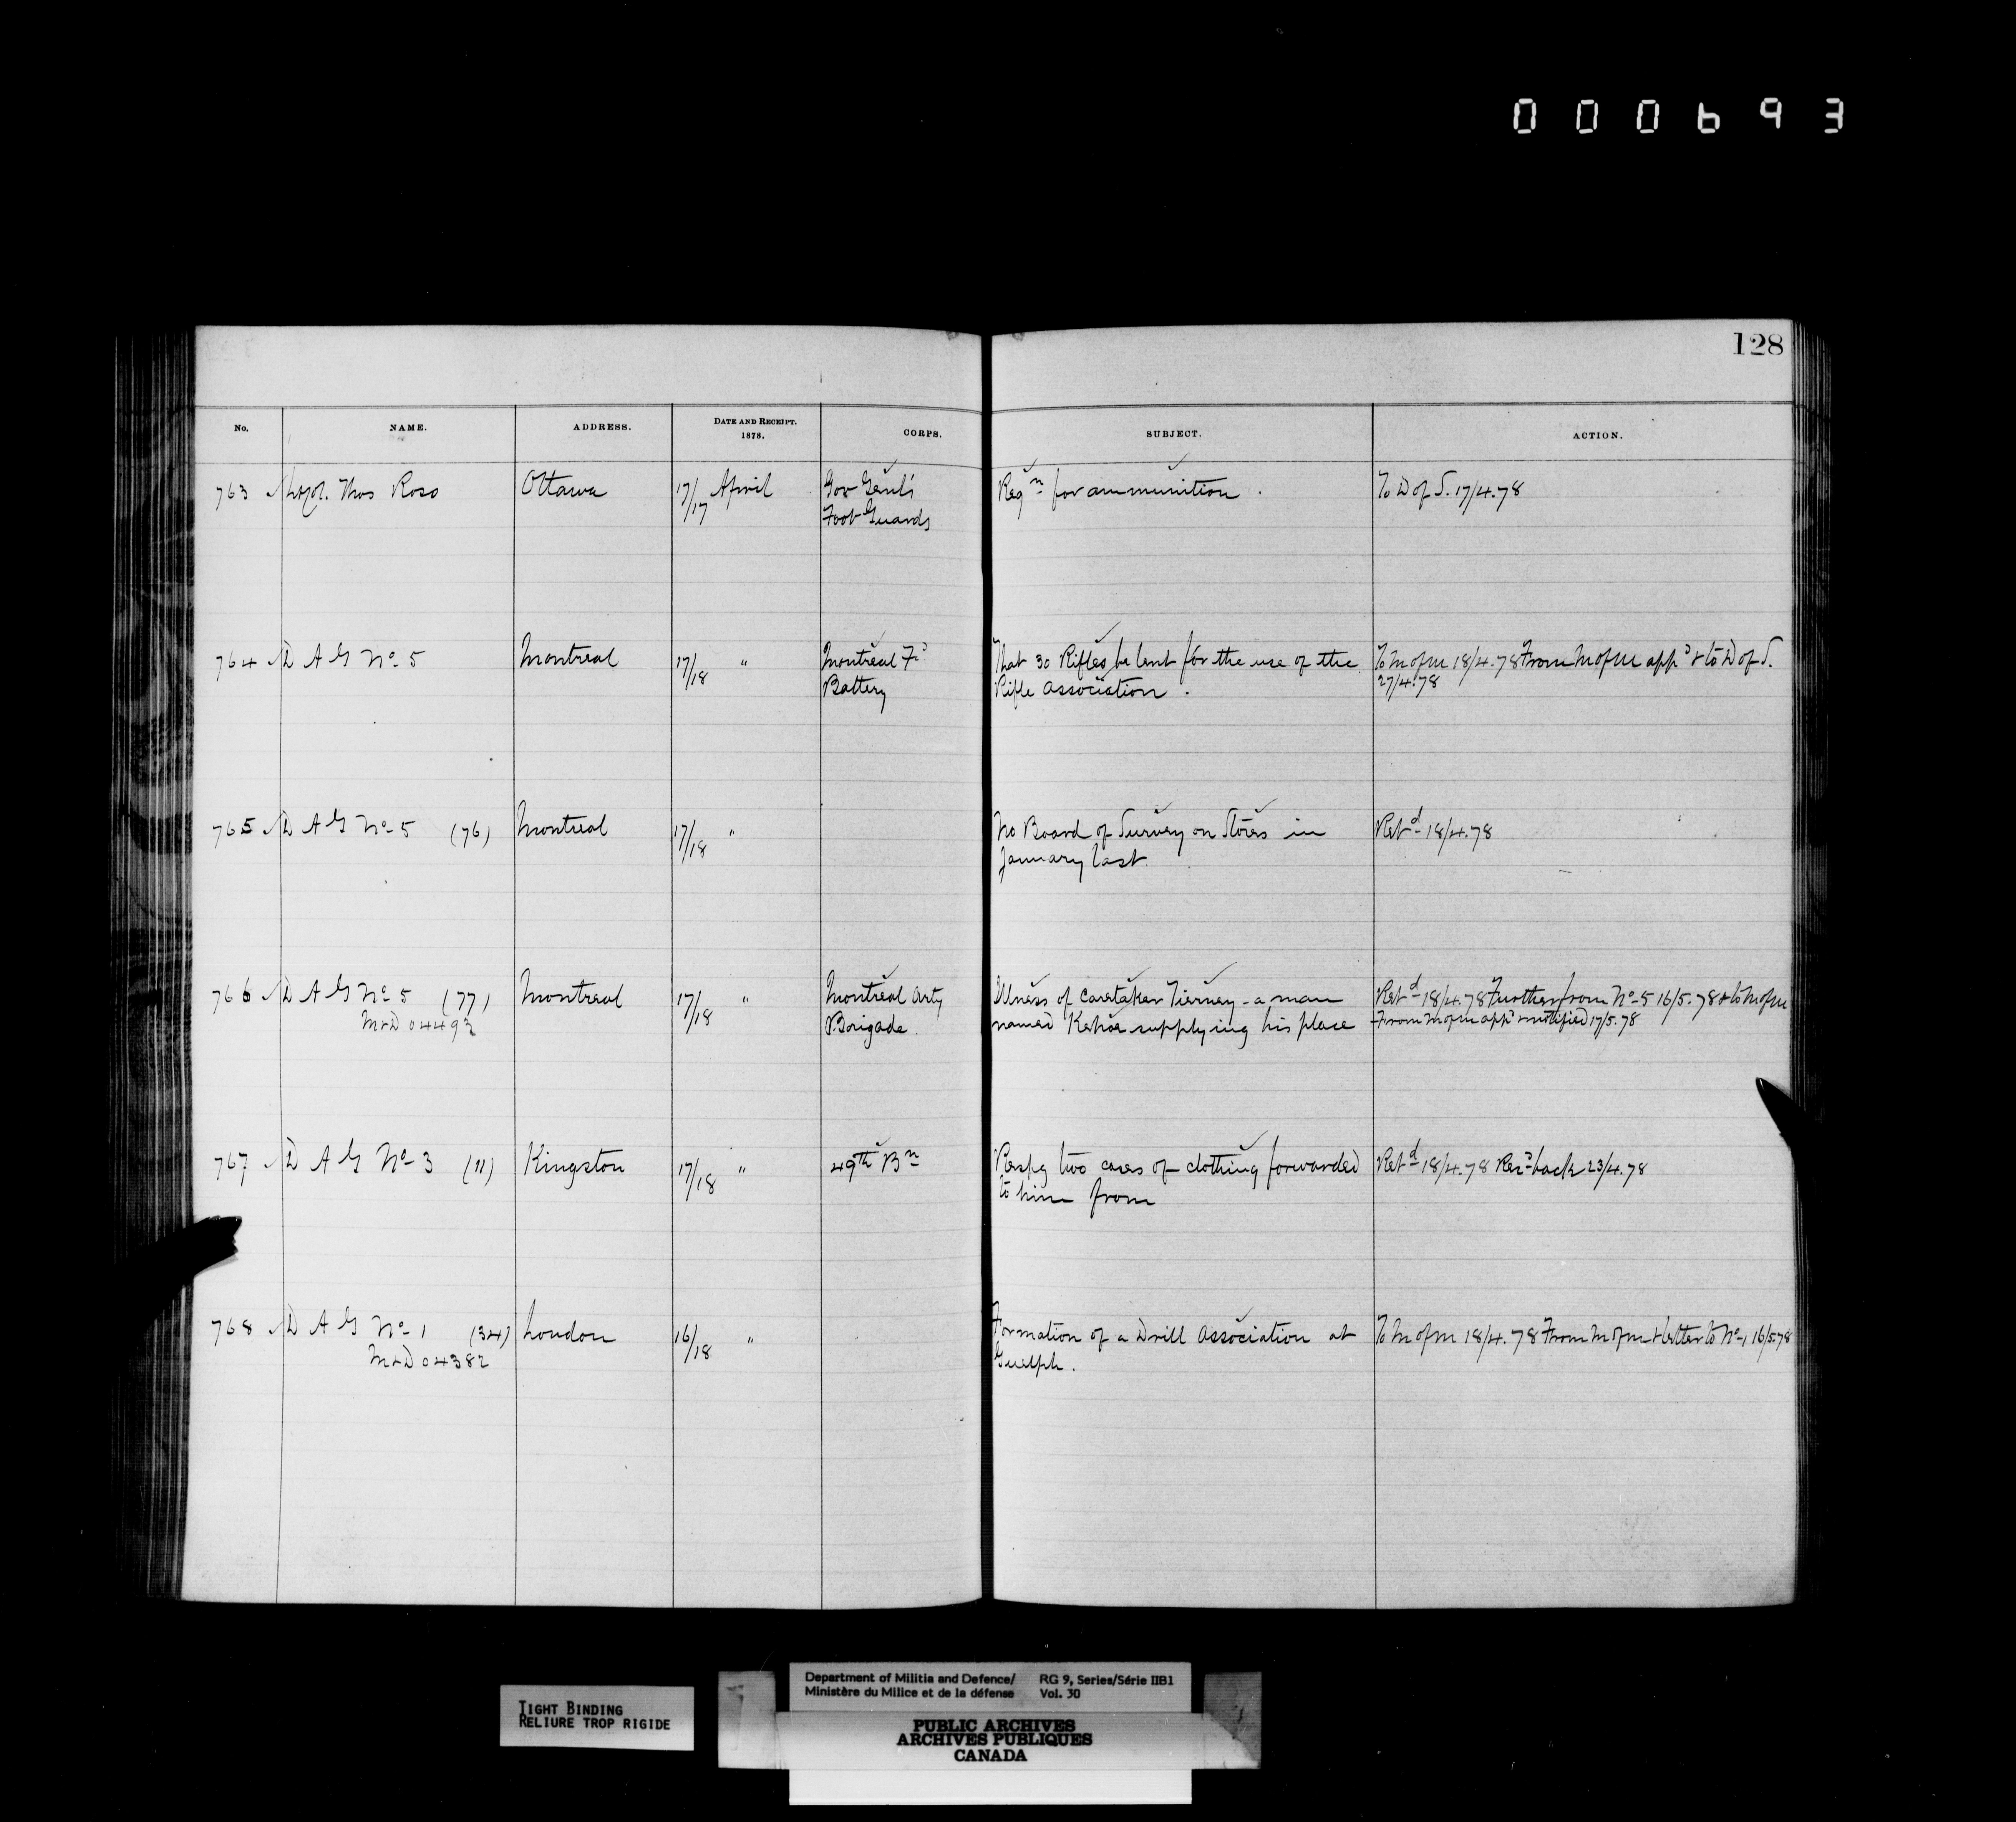 000693
128
No. NAME. ADDRESS. DATE AND RECEIPT. 1878. CORPS. SUBJECT. ACTION.
763 Thos Ross Ottawa 17/17 April Gov Genl's Reqn for ammunition. To D of S. 17/4.78
Foot Guards
764 D A G No 5 Montreal 17/18 " Montreal Fd That 30 Rifles be lent for the use of the To M of M 18/4.78 From M of M appd & to D of S.
Battery Rifle Association. 27/4.78
765 D A G No 5 (76) Montreal 17/18 " No Board of Survey on Stores in Retd 18/4.78
January last
766 D A G No 5 (77) Montreal 17/18 " Montreal Arty Illness of Caretaker Tierney - a man Retd 18/4.78 Further from No 5 16/5.78 & to M of M
M&D 04492 Brigade. named Kehoe supplying his place From M of M appd & notified 17/5.78
767 D A G No 3 (11) Kingston 17/18 " 49th Bn Respg two cases of clothing forwarded Retd 18/4.78 Recd back 23/4.78
to him from
768 D A G No 1 (34) London 16/18 " Formation of a Drill Association at To M of M 18/4.78 From M of M & letter to No 1, 16/5.78
M&D 04382 Guelph.
TIGHT BINDING
RELIURE TROP RIGIDE
Department of Militia and Defence/ RG 9, Series/Série IIB1
Ministère du Milice et de la défense Vol. 30
PUBLIC ARCHIVES
ARCHIVES PUBLIQUES
CANADA